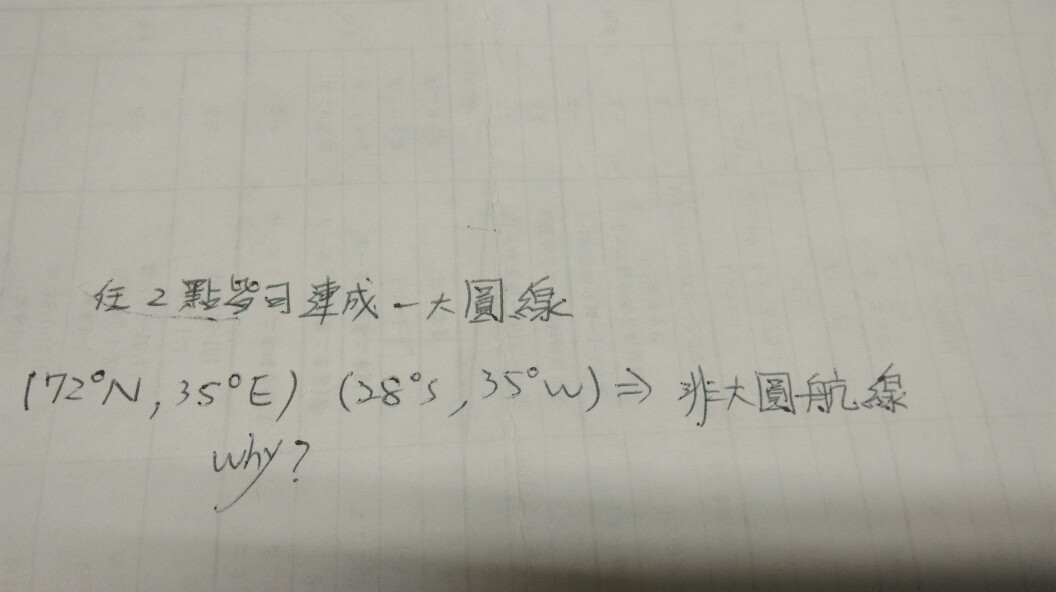 任2點皆可連成一大圓線
(72°N, 35°E) (28°S, 35°W) ⇒ 非大圓航線
why?